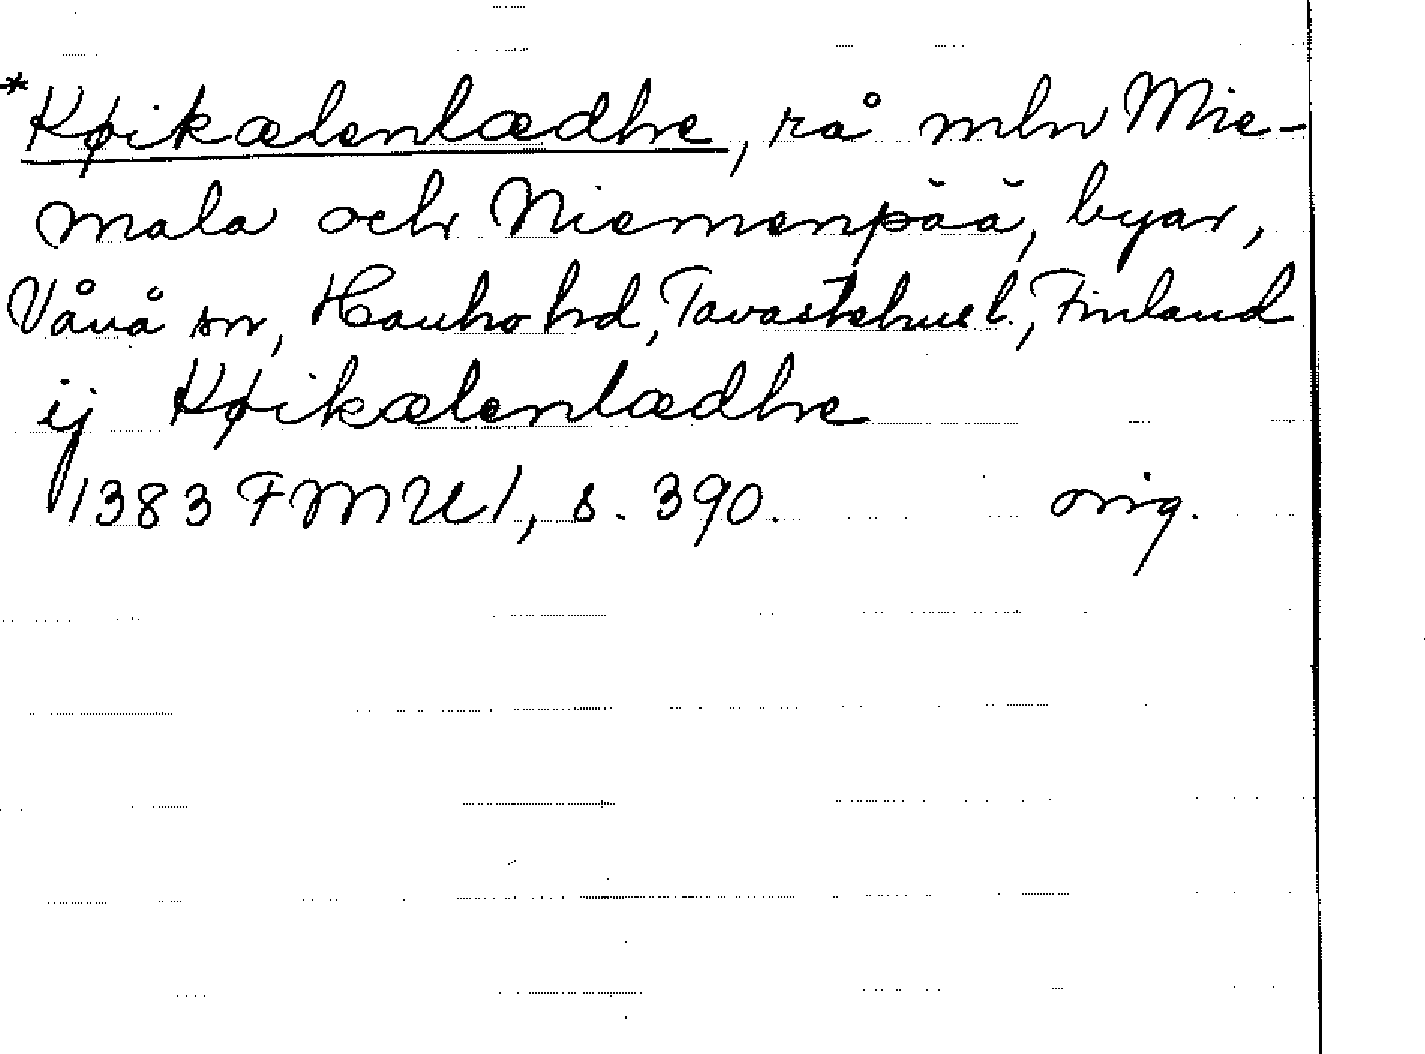 *Køikælenlædhe, rå mln Mie-
mala och Niemenpää, byar,
Vånå sn, Hauho hd, Tavastehus l., Finland
ij Køikælenlædhe
1383 FMU 1, s. 390. orig.